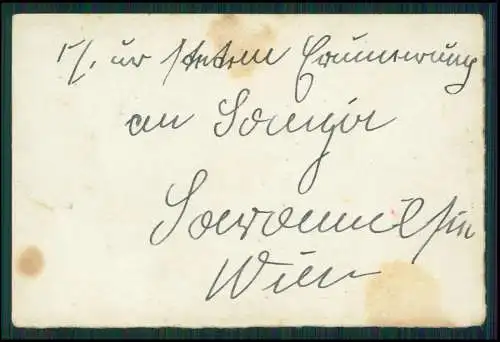 Zur steten Erinnerung
an Sonja
Wien